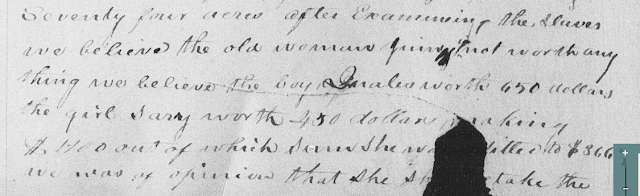 Seventy four acres after Examining the Slaves
we believe the old woman not worth any
thing we believe the boy Quales worth 650 dollars
the girl Sary worth 450 dollars making
$1100 out of which sum she was to $366
we was of opinion that she take the